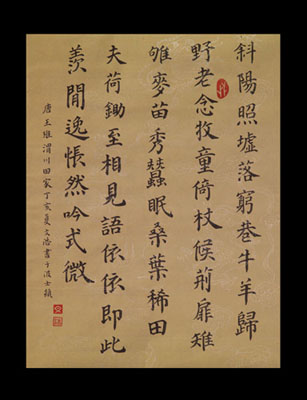 斜陽照墟落窮巷牛羊歸
野老念牧童倚杖候荊扉雉
雊麥苗秀蠶眠桑葉稀田
夫荷鋤至相見語依依即此
羨閒逸悵然吟式微
唐王維渭川田家丁亥夏文浩書于波士頓